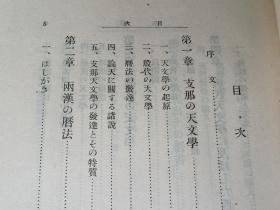 目次
目次
序文
第一章 支那の天文學
一、天文學の起原
二、殷代の天文學
三、曆法の發達
四、論天に關する諸說
五、支那天文學の發達とその特質
第二章 兩漢の曆法
一、はしがき